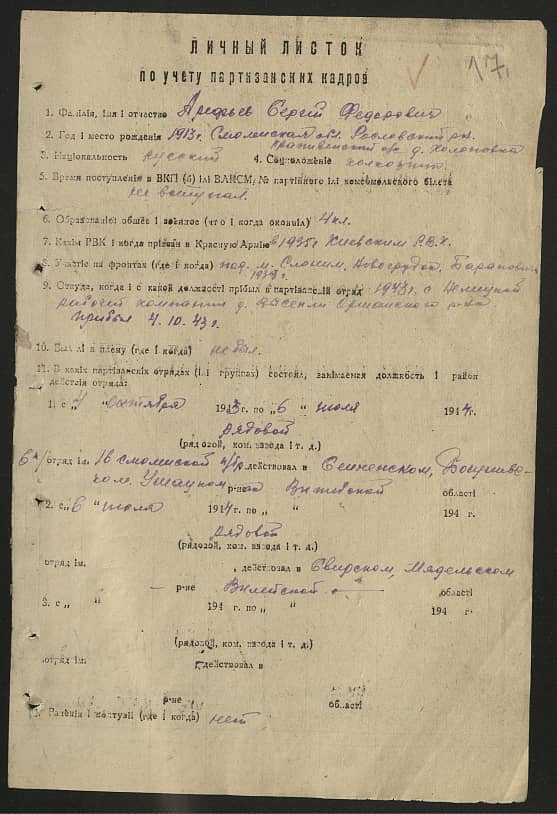 17.
ЛИЧНЫЙ ЛИСТОК
по учету партизанских кадров
1. Фамілія, імя і отчество Арефьев Сергей Федорович
2. Год і место рождения 1913 г. Смоленская обл. Рословский рн.
д. Холоповка
3. Національность русский 4. Соцположеніе колхозник
5. Время поступленія в ВКП (б) ілі ВЛКСМ, № партійного ілі комсомольского білета
не вступал.
6. Образованіе: общее і военное (что і когда окончіл) 4 кл.
7. Какім РВК і когда прізван в Красную Армію в 1935 г Киевским Р.В.К.
8. Участіе на фронтах (где і когда) под м. Слоним, Новогрудок, Баранович
1939 г.
9. Откуда, когда і с какой должності прібыл в партізанскій отряд 1943 г. с Немецкой
рабочей компании д. Оршанского р-на
Прибыл 4.10.43 г.
10. Был лі в плену (где і когда) не был.
11. В какіх партізанскіх отрядах (ілі группах) состоял, занімаемая должность і район
действія отряда:
1. с „4 октября 1943 г. по „6 " июля 1944 г.
рядовой
(рядовой, ком. взвода і т. д.)
6й отряд ім. 16 смоленской п/бр действовал в Сенненском,
Ушацком р-не Витебской області
2. с „6 " июля 1944 г. по „ " 194 г.
рядовой
(рядовой, ком. взвода і т. д.)
отряд ім. действовал в Свирском, Мядельском
р-не Вилейской області
3. с „ " 194 г. по „ " 194 г.
(рядовой, ком. взвода і т. д.)
отряд ім. действовал в
р-не області
Раненія і контузіі (где і когда) нет